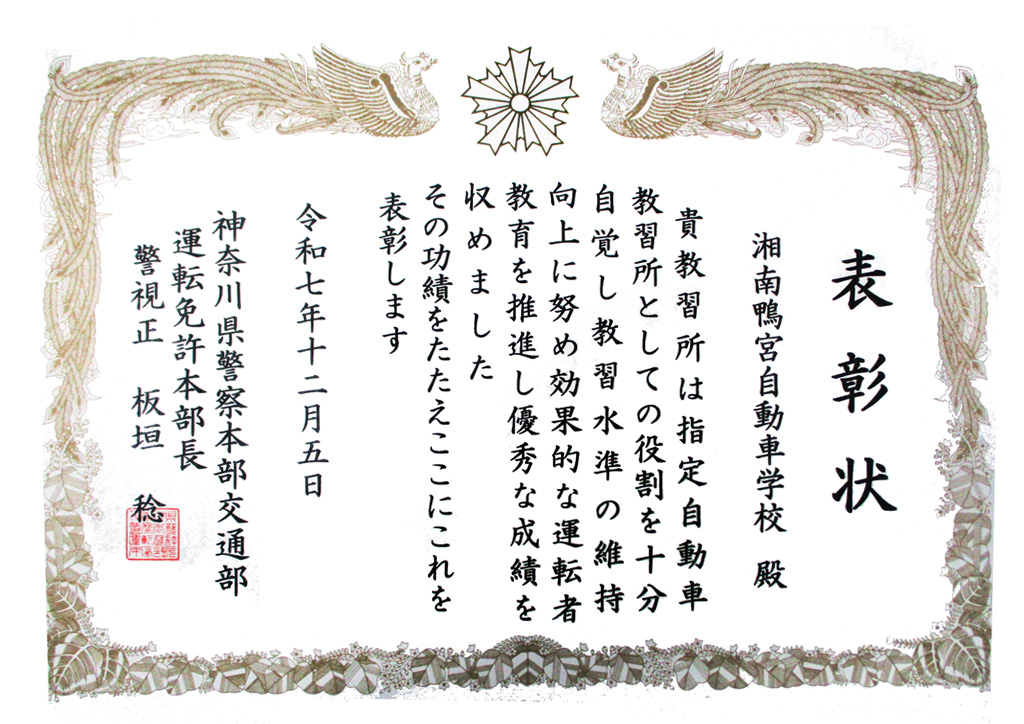 表彰状
湘南鴨宮自動車学校 殿
貴教習所は指定自動車
教習所としての役割を十分
自覚し教習水準の維持
向上に努め効果的な運転者
教育を推進し優秀な成績を
収めました
その功績をたたえここにこれを
表彰します
令和七年十二月五日
神奈川県警察本部交通部
運転免許本部長
警視正 板垣 稔